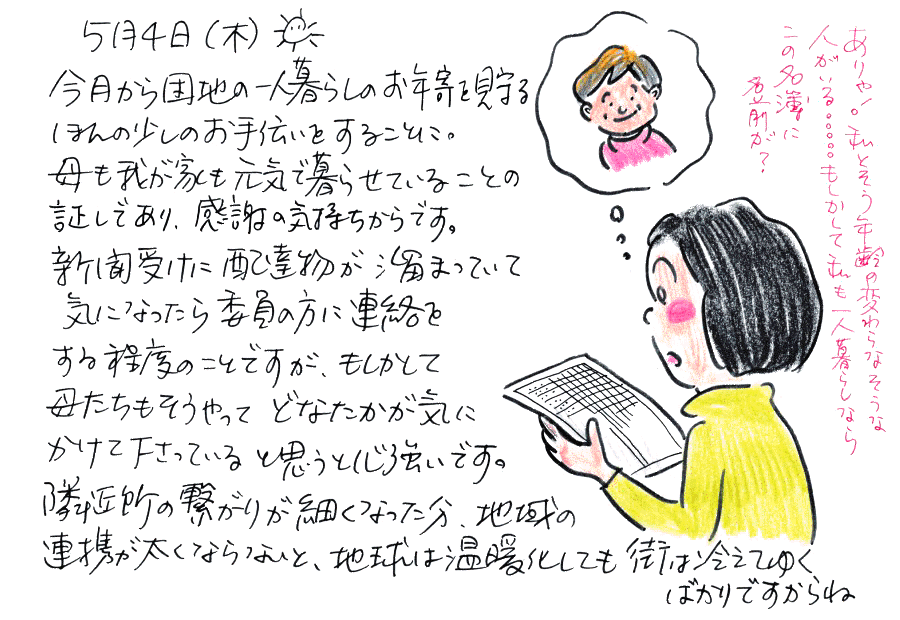 5月4日(木)
今月から団地の一人暮らしのお年寄を見守る
ほんの少しのお手伝いをすることに。
母も我が家も元気で暮らせていることの
証しであり、感謝の気持ちからです。
新聞受けに配達物が溜まっていて
気になったら委員の方に連絡を
する程度のことですが、もしかして
母たちもそうやってどなたかが気に
かけて下さっていると思うと心強いです。
隣近所の繋がりが細くなった分、地域の
連携が太くならないと、地球は温暖化しても街は冷えてゆく
ばかりですからね
ありゃ!私とそう年齢の変わらなそうな
人がいる……もしかして私も一人暮らしなら
この名簿に
名前が?